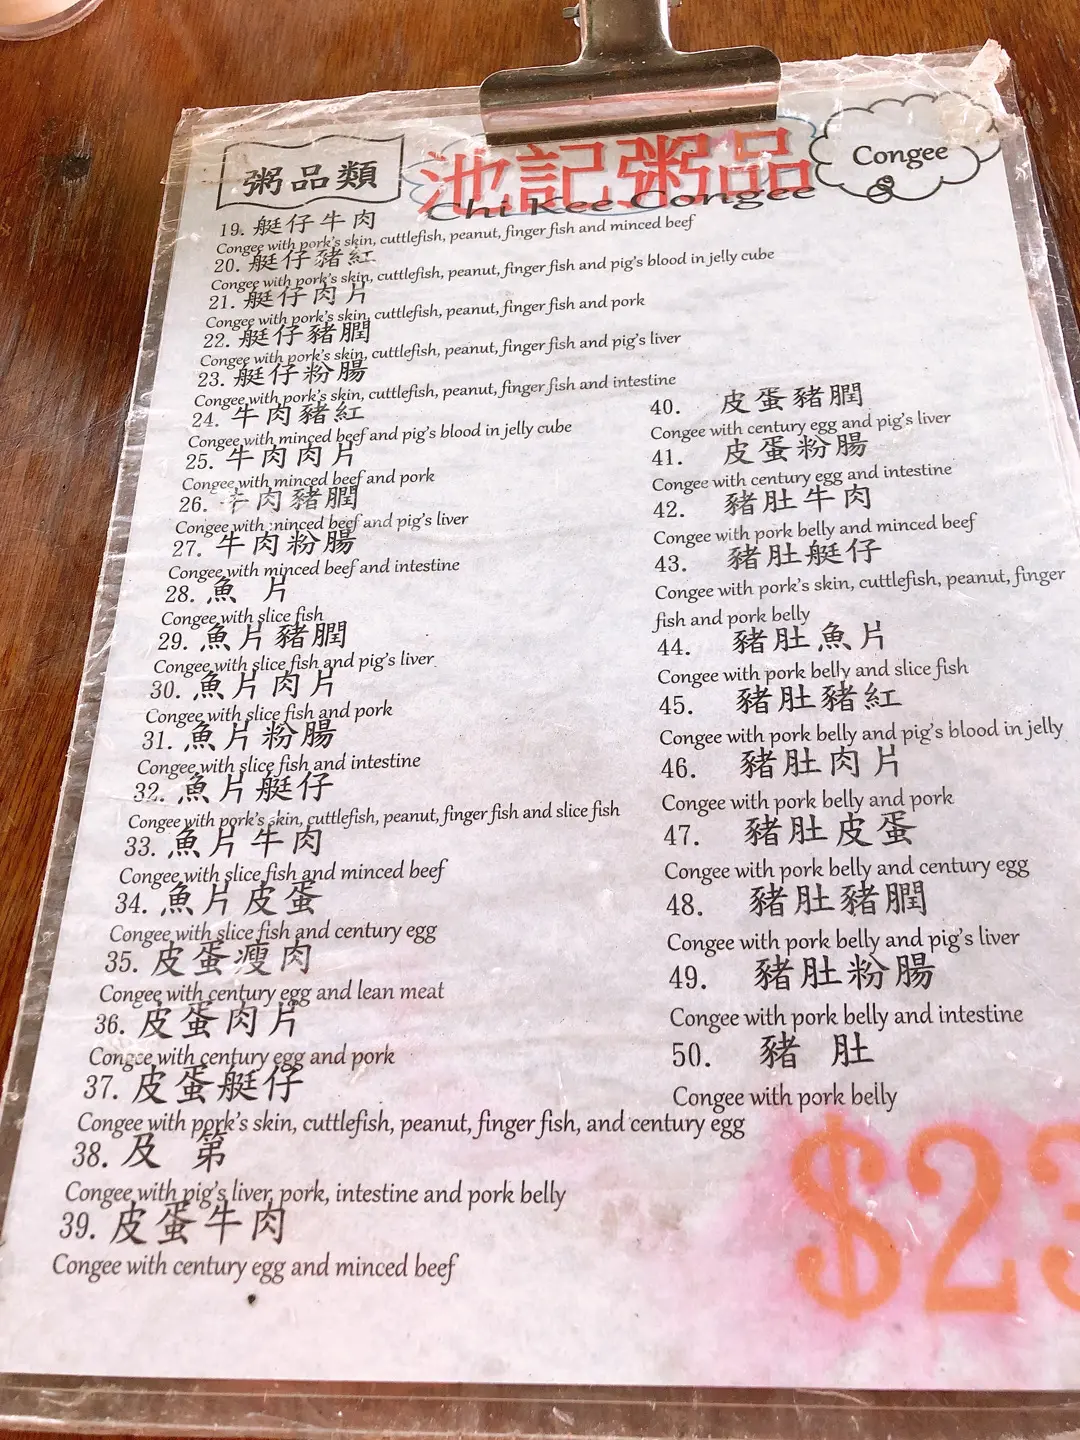 粥品類
池記粥品
Chi Kee Congee
Congee
19. 艇仔牛肉
Congee with pork's skin, cuttlefish, peanut, finger fish and minced beef
20. 艇仔豬紅
Congee with pork's skin, cuttlefish, peanut, finger fish and pig's blood in jelly cube
21. 艇仔肉片
Congee with pork's skin, cuttlefish, peanut, finger fish and pork
22. 艇仔豬膶
Congee with pork's skin, cuttlefish, peanut, finger fish and pig's liver
23. 艇仔粉腸
Congee with pork's skin, cuttlefish, peanut, finger fish and intestine
24. 牛肉豬紅
Congee with minced beef and pig's blood in jelly cube
25. 牛肉肉片
Congee with minced beef and pork
26. 牛肉豬膶
Congee with minced beef and pig's liver
27. 牛肉粉腸
Congee with minced beef and intestine
28. 魚 片
Congee with slice fish
29. 魚片豬膶
Congee with slice fish and pig's liver
30. 魚片肉片
Congee with slice fish and pork
31. 魚片粉腸
Congee with slice fish and intestine
32. 魚片艇仔
Congee with pork's skin, cuttlefish, peanut, finger fish and slice fish
33. 魚片牛肉
Congee with slice fish and minced beef
34. 魚片皮蛋
Congee with slice fish and century egg
35. 皮蛋瘦肉
Congee with century egg and lean meat
36. 皮蛋肉片
Congee with century egg and pork
37. 皮蛋艇仔
Congee with pork's skin, cuttlefish, peanut, finger fish, and century egg
38. 及 第
Congee with pig's liver, pork, intestine and pork belly
39. 皮蛋牛肉
Congee with century egg and minced beef
40. 皮蛋豬膶
Congee with century egg and pig's liver
41. 皮蛋粉腸
Congee with century egg and intestine
42. 豬肚牛肉
Congee with pork belly and minced beef
43. 豬肚艇仔
Congee with pork's skin, cuttlefish, peanut, finger
fish and pork belly
44. 豬肚魚片
Congee with pork belly and slice fish
45. 豬肚豬紅
Congee with pork belly and pig's blood in jelly
46. 豬肚肉片
Congee with pork belly and pork
47. 豬肚皮蛋
Congee with pork belly and century egg
48. 豬肚豬膶
Congee with pork belly and pig's liver
49. 豬肚粉腸
Congee with pork belly and intestine
50. 豬 肚
Congee with pork belly
$23